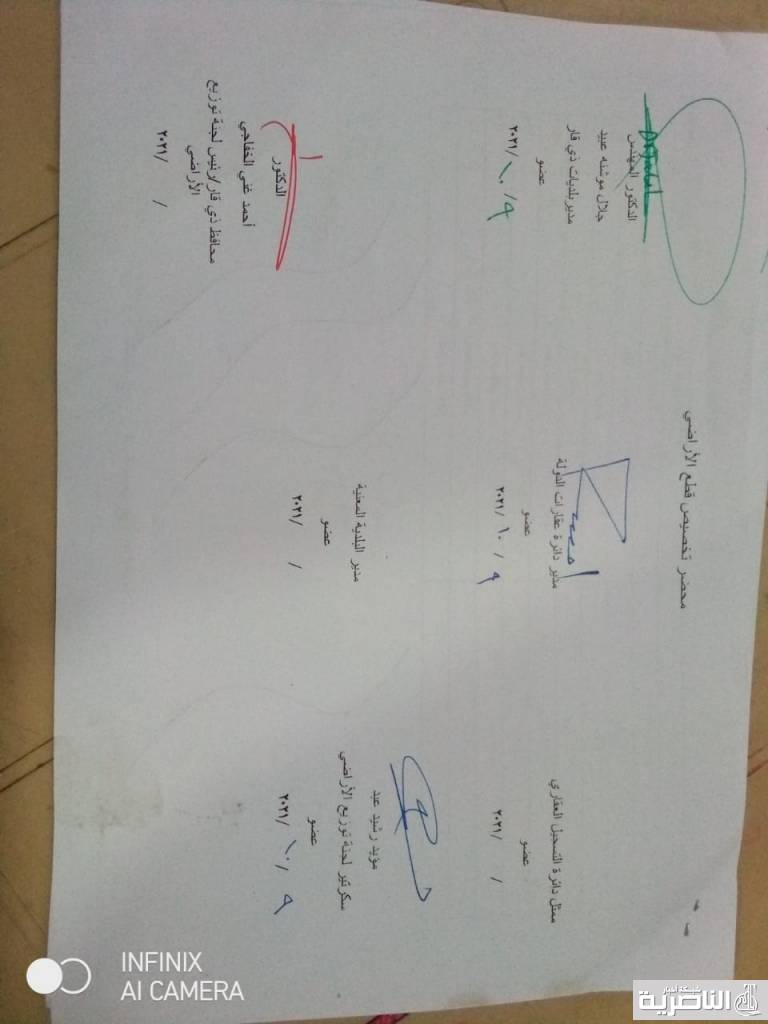 محضر تخصيص قطع الأراضي
الدكتور المهندس
جلال موشنه عبيد
مدير بلديات ذي قار
عضو
٢٠٢١/١٠/٩
مدير دائرة عقارات الدولة
عضو
٢٠٢١/١٠/٩
ممثل دائرة التسجيل العقاري
عضو
٢٠٢١/ /
الدكتور
أحمد غني الخفاجي
محافظ ذي قار/رئيس لجنة توزيع
الأراضي
٢٠٢١/ /
مدير البلدية المعنية
عضو
٢٠٢١/ /
مؤيد رشيد عبد
سكرتير لجنة توزيع الأراضي
عضو
٢٠٢١/١٠/٩
INFINIX
AI CAMERA
شبكة اخبار
الناصرية